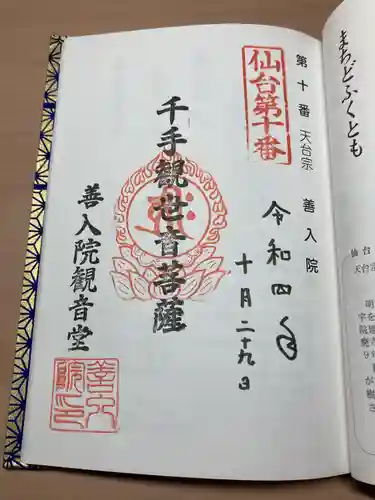 まちどふくとも
仙台第十番
第十番 天台宗 善入院
令和四年
十月二十九日
千手観世音菩薩
善入院観音堂
善入院印
仙台
天台宗